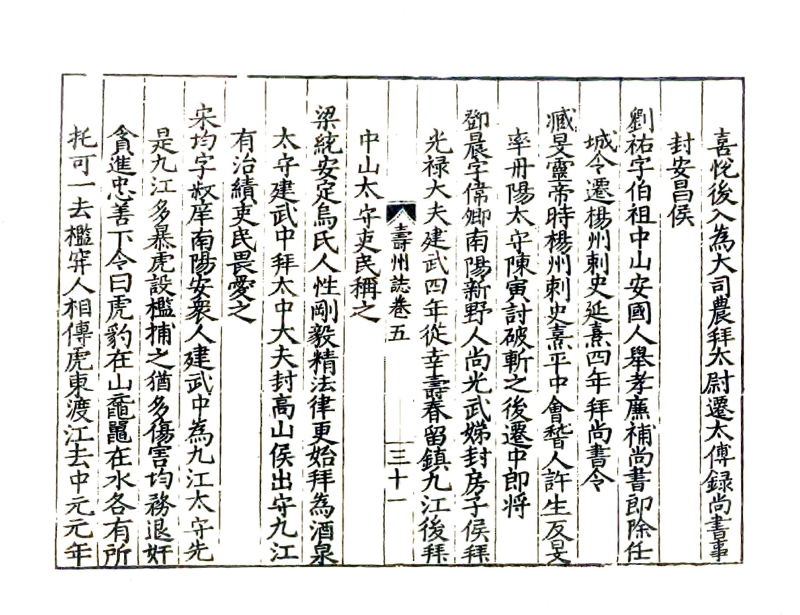 喜悅後入為大司農拜太尉遷太傅録尚書事
封安昌侯
劉祐字伯祖中山安國人舉孝廉補尚書郎除任
城令遷楊州刺史延熹四年拜尚書令
臧旻靈帝時楊州刺史熹平中會稽人許生反旻
率丹陽太守陳寅討破斬之後遷中郎將
鄧晨字偉卿南陽新野人尚光武娣封房子侯拜
光禄大夫建武四年從幸壽春留鎮九江後拜
壽州誌卷五
三十一
中山太守吏民稱之
梁統安定烏氏人性剛毅精法律更始拜為酒泉
太守建武中拜太中大夫封高山侯出守九江
有治績吏民畏愛之
宋均字叔庠南陽安衆人建武中為九江太守先
是九江多暴虎設檻捕之猶多傷害均務退奸
貪進忠善下令曰虎豹在山黿鼉在水各有所
托可一去檻穽人相傳虎東渡江去中元元年